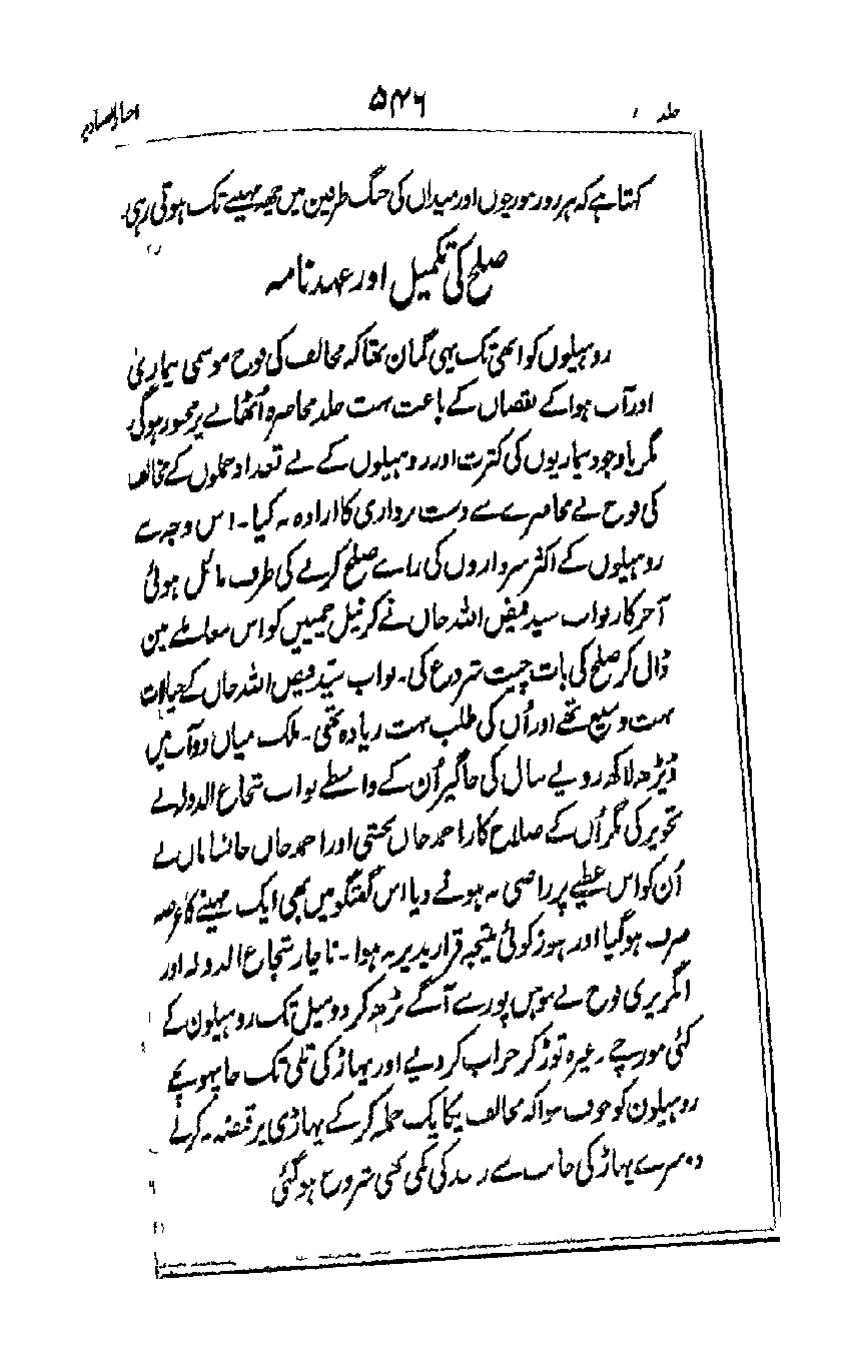 جلد ۱ ۵۴۶ اخبار الصنادید
کہتا ہے کہ ہر روز مورچوں اور میدان کی جنگ طرفین میں چھ مہینے تک ہوتی رہی۔
صلح کی تکمیل اور عہدنامہ
روہیلوں کو ابھی تک یہی گمان تھا کہ مخالف کی فوج موسمی بیماری
اور آب ہوا کے نقصان کے باعث بہت جلد محاصرہ اُٹھانے پر مجبور ہوگی
مگر باوجود بیماریوں کی کثرت اور روہیلوں کے بے تعداد حملوں کے مخالف
کی فوج نے محاصرے سے دست برداری کا ارادہ نہ کیا۔ اس وجہ سے
روہیلوں کے اکثر سرداروں کی رائے صلح کرنے کی طرف مائل ہوئی
آخرکار نواب سید فیض اللہ خاں نے کرنیل چیمپین کو اس معاملے مین
ڈال کر صلح کی بات چیت شروع کی۔ نواب سیّد فیض اللہ خاں کے خیالات
بہت وسیع تھے اور اُن کی طلب بہت زیادہ تھی۔ ملک میاں دوآب میں
ڈیڑھ لاکھ روپے سال کی جاگیر اُن کے واسطے نواب شجاع الدولہ نے
تجویز کی مگر اُن کے صلاح کار احمد خاں بخشی اور احمد خاں خانساماں نے
اُن کو اس عطیے پر راضی نہ ہونے دیا اس گفتگو میں بھی ایک مہینے کا عرصہ
صرف ہوگیا اور ہنوز کوئی نتیجہ قرار پذیر نہ ہوا۔ ناچار شجاع الدولہ اور
انگریزی فوج نے موہن پور سے آگے بڑھ کر دو میل تک روہیلون کے
کئی مورچے وغیرہ توڑ کر خراب کر دیے اور پہاڑ کی تلی تک جا پہونچے
روہیلون کو خوف ہوا کہ مخالف یکایک حملہ کر کے پہاڑی پر قبضہ نہ کرلے
دوسرے پہاڑ کی جانب سے رسد کی کمی بھی شروع ہوگئی